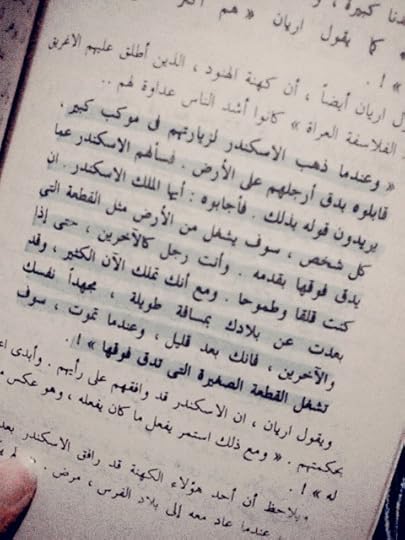 دنا كبيرة ، و
» كما يقول اريان « هم أكثر
» ! .
ول اريان أيضاً ، أن كهنة الهنود ، الذين أطلق عليهم الاغريق
الفلاسفة العراة » كانوا أشد الناس عداوة لهم ..
« وعندما ذهب الاسكندر لزيارتهم فى موكب كبير ،
قابلوه بدق أرجلهم على الأرض . فسألهم الاسكندر عما
يريدون قوله بذلك . فأجابوه : أيها الملك الاسكندر . ان
كل شخص ، سوف يشغل من الأرض مثل القطعة التى
يدق فوقها بقدمه . وأنت رجل كالآخرين ، حتى إذا
كنت قلقا وطموحا . ومع أنك تملك الآن الكثير ، وقد
بعدت عن بلادك بمسافة طويلة ، مجهداً نفسك
والآخرين ، فانك بعد قليل ، وعندما تموت ، سوف
تشغل القطعة الصغيرة التى تدق فوقها » ! .
ويقول اريان ، ان الاسكندر قد وافقهم على رأيهم . وأبدى اع
بحكمتهم . « ومع ذلك استمر يفعل ما كان يفعله ، وهو عكس م
له » ! .
ويلاحظ أن أحد هؤلاء الكهنة قد رافق الاسكندر بعد
عندما عاد معه إلى بلاد الفرس ، مرض .